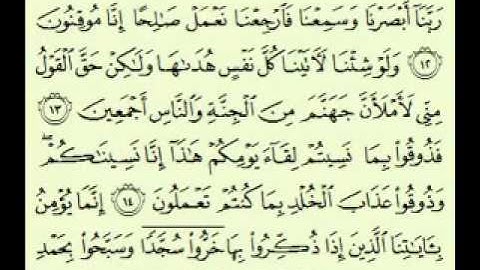 رَبَّنَآ أَبْصَرْنَا وَسَمِعْنَا فَٱرْجِعْنَا نَعْمَلْ صَٰلِحًا إِنَّا مُوقِنُونَ
١٢ وَلَوْ شِئْنَا لَءَاتَيْنَا كُلَّ نَفْسٍ هُدَىٰهَا وَلَٰكِنْ حَقَّ ٱلْقَوْلُ
مِنِّى لَأَمْلَأَنَّ جَهَنَّمَ مِنَ ٱلْجِنَّةِ وَٱلنَّاسِ أَجْمَعِينَ ١٣
فَذُوقُوا۟ بِمَا نَسِيتُمْ لِقَآءَ يَوْمِكُمْ هَٰذَآ إِنَّا نَسِينَٰكُمْ ۖ
وَذُوقُوا۟ عَذَابَ ٱلْخُلْدِ بِمَا كُنتُمْ تَعْمَلُونَ ١٤ إِنَّمَا يُؤْمِنُ
بِـَٔايَٰتِنَا ٱلَّذِينَ إِذَا ذُكِّرُوا۟ بِهَا خَرُّوا۟ سُجَّدًا وَسَبَّحُوا۟ بِحَمْدِ